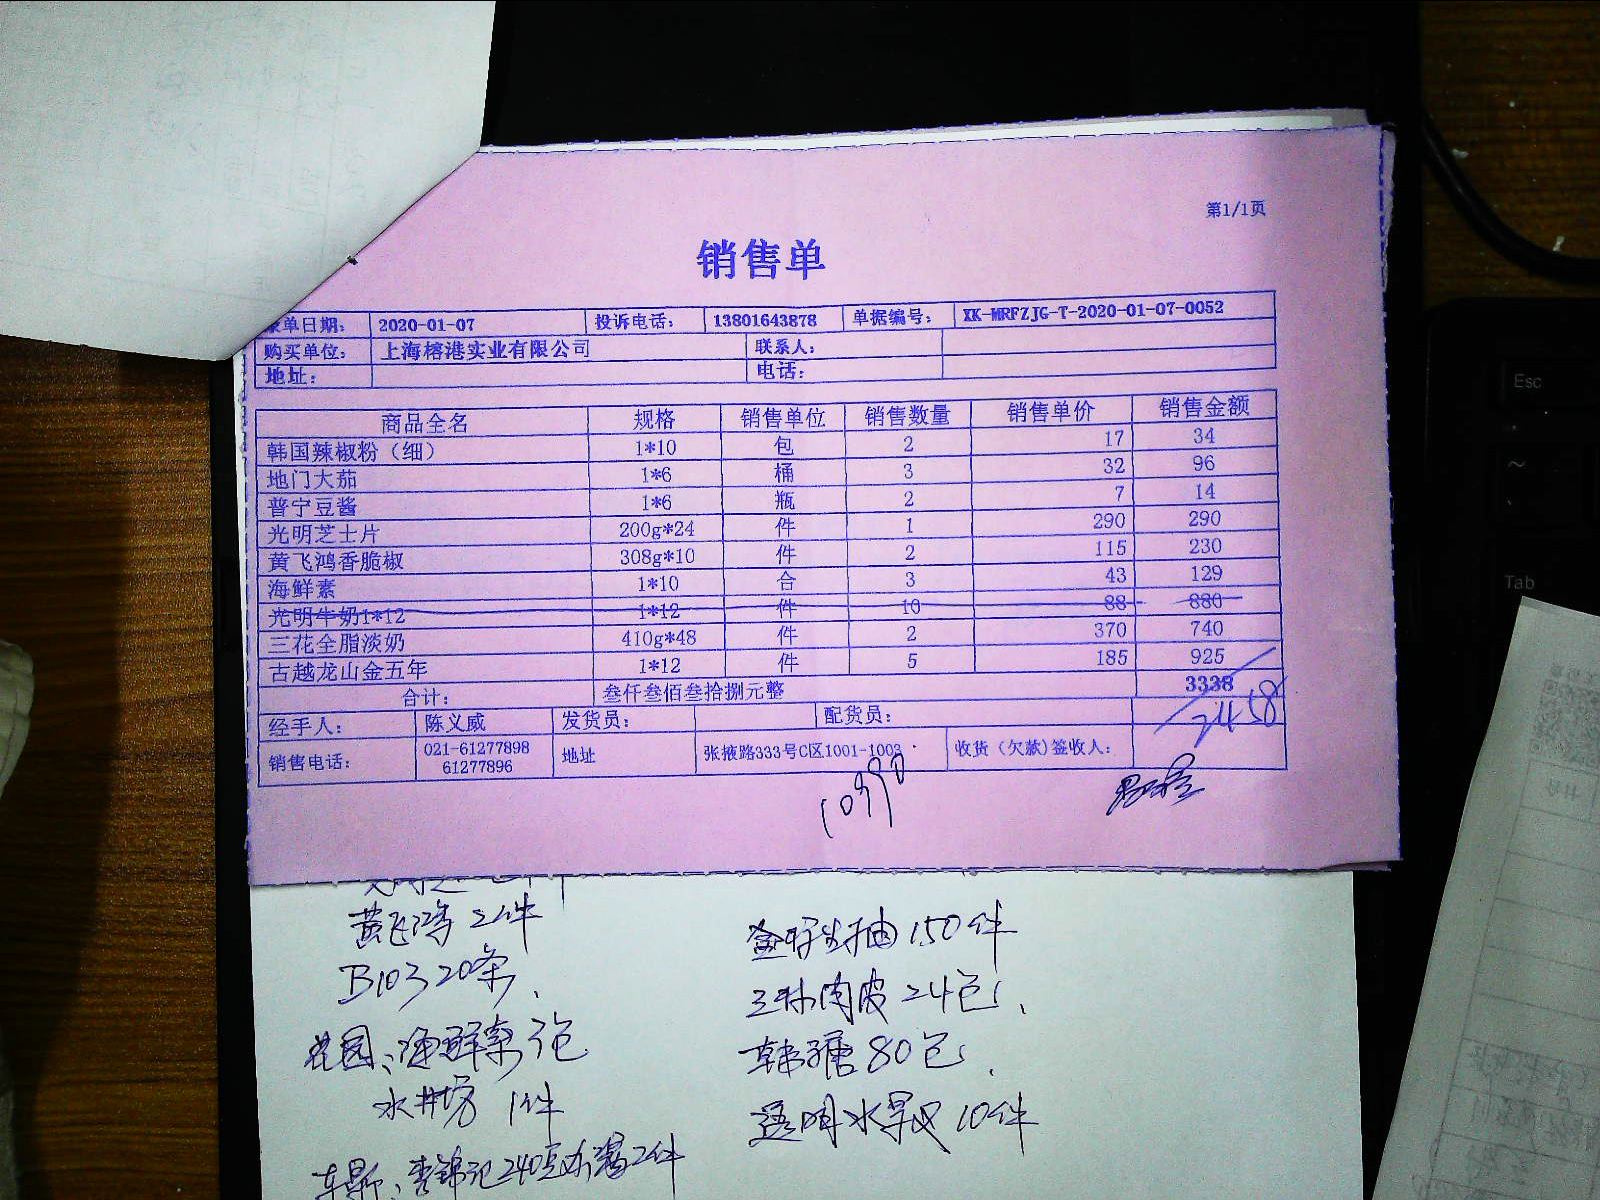 第1/1页
销售单
录单日期： 2020-01-07 投诉电话： 13801643878 单据编号： XK-MRFZJG-T-2020-01-07-0052
购买单位： 上海榕港实业有限公司 联系人：
地址： 电话：
商品全名 规格 销售单位 销售数量 销售单价 销售金额
韩国辣椒粉（细） 1*10 包 2 17 34
地门大茄 1*6 桶 3 32 96
普宁豆酱 1*6 瓶 2 7 14
光明芝士片 200g*24 件 1 290 290
黄飞鸿香脆椒 308g*10 件 2 115 230
海鲜素 1*10 合 3 43 129
光明牛奶1*12 1*12 件 10 88 880
三花全脂淡奶 410g*48 件 2 370 740
古越龙山金五年 1*12 件 5 185 925
合计： 叁仟叁佰叁拾捌元整 3338
2458
经手人： 陈义威 发货员： 配货员：
销售电话： 021-61277898 地址 张掖路333号C区1001-1003 收货（欠款)签收人：
61277896
黄飞鸿 2件
B103 20条
花园、海鲜素 3包
水井坊 1件
150件
24包
韩糖 80包
10件
2件
Esc
~
Tab